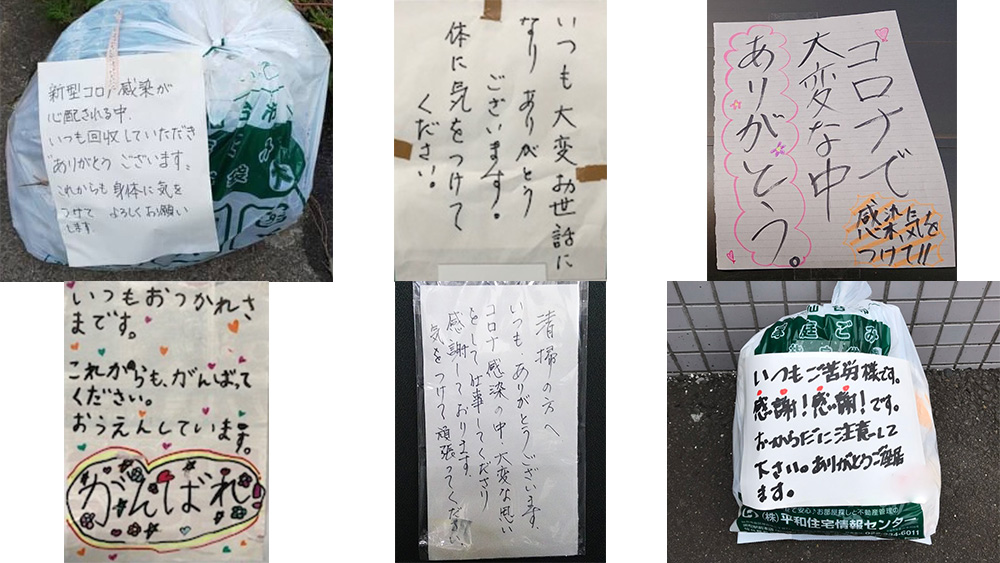 新型コロナ感染が
心配される中、
いつも回収していただき
ありがとうございます。
これからも身体に気を
つけて よろしくお願い
します。
いつも大変お世話に
なり ありがとう
ございます。
体に気をつけて
ください。
コロナで
大変な中
ありがとう。
感染に
気を
つけて!!
いつもおつかれさ
までです。
これからも、がんばって
ください。
おうえんしています。
がんばれ
清掃の方へ
いつも、ありがとうございます。
コロナ感染の中、大変な思い
をして仕事してくださり
感謝しております。
気をつけて頑張ってください。
家庭ごみ
いつもご苦労様です。
感謝!感謝!です。
おからだに注意して
下さい。ありがとうご座居
ます。
(株)平和住宅情報センター